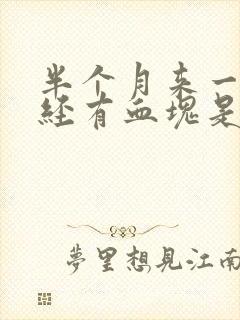 半个月来一
经有血块是
夢里想見江南